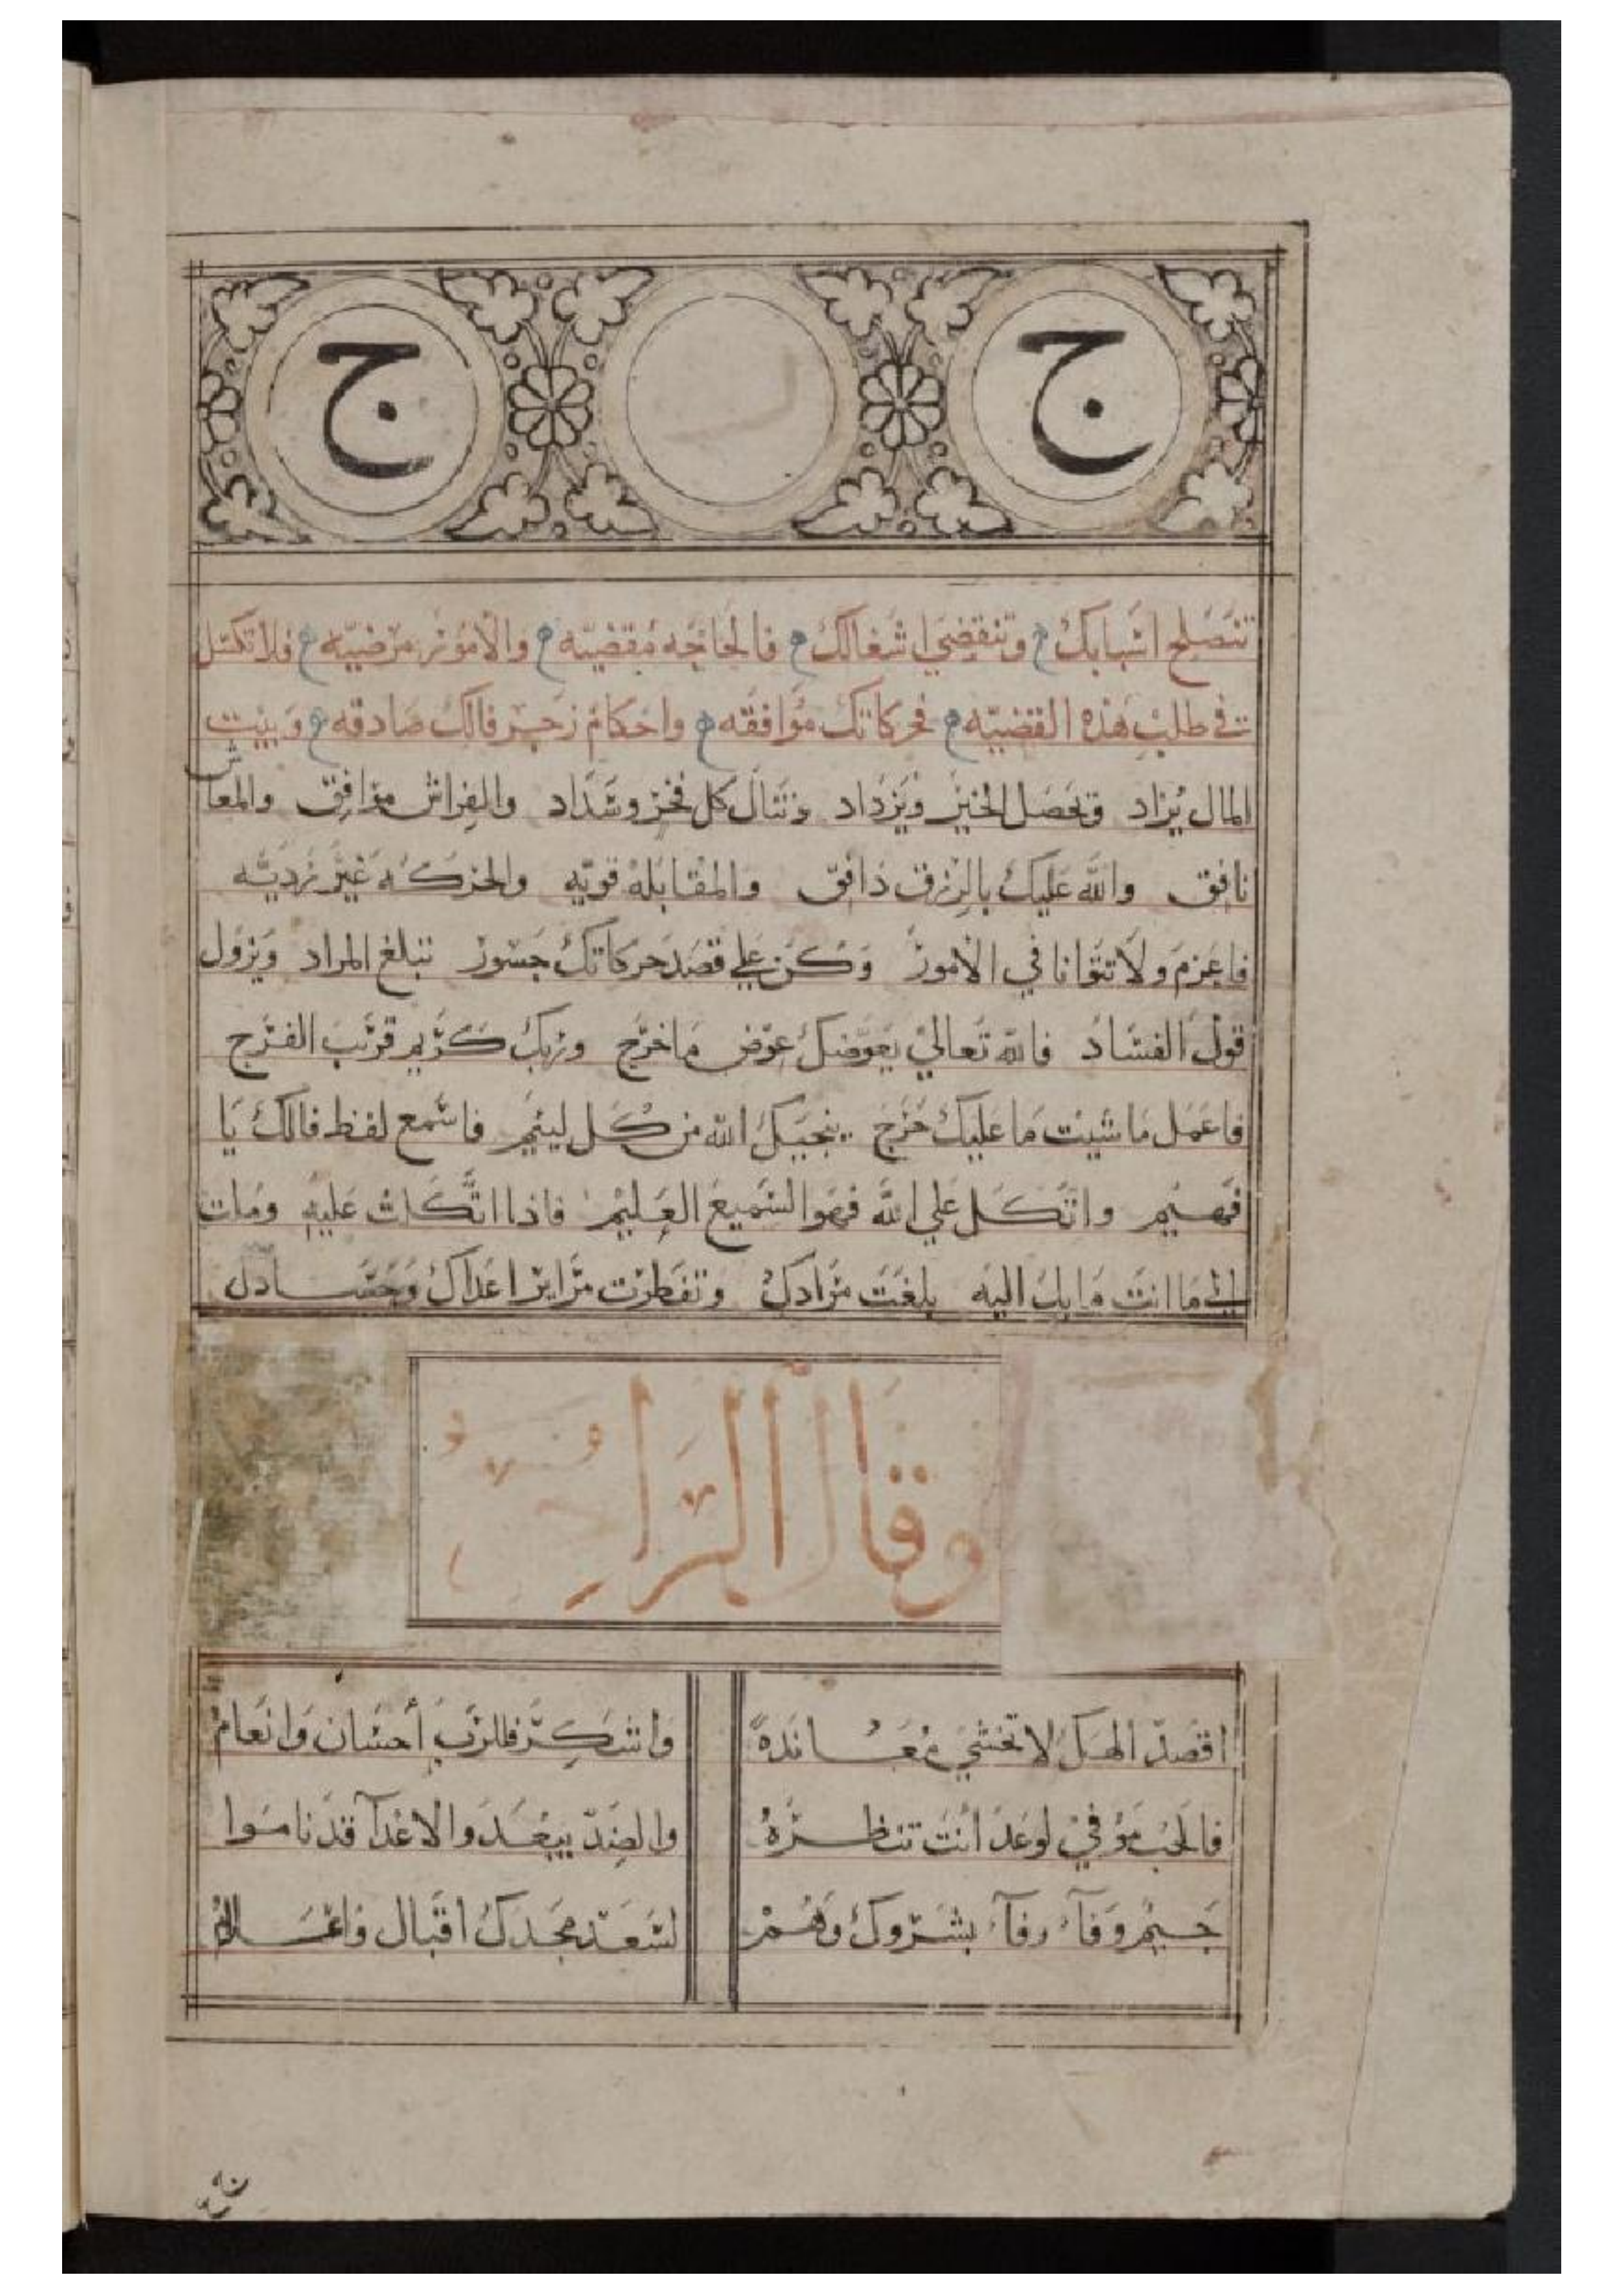 ج ج
تنصلح اسبابك وتنقضي اشغالك فالحاجه مقضيه والامور مرضيه فلا تكسل
في طلب هذه القضيه فحركاتك موافقه واحكام زجر فالك صادقه وبيت
المال يزاد وتحصل الخير ويزداد وتنال كل فخر وسداد والفراش موافق والمعاش
نافق والله عليك بالرزق دافق والمقابله قويه والحركه غير رديه
فاعزم ولا تتوانا في الامور وكن على قصد حركاتك جسور تبلغ المراد ويزول
قول الفساد فالله تعالي يعوضك عوض ما خرج وربك كريم قريب الفرج
فاعمل ما شيت ما عليك حرج ينجيك الله من كل ليئم فاسمع لفظ فالك يا
فهيم واتكل علي الله فهو السميع العليم فاذا اتكلت عليه وملت
ما انت مايل اليه بلغت مرادك وتفطرت مراير اعداك وحسادك
وقال
اقصد لا تخشي معانده واشكر فللرب أحسان وانعام
فالحب موفي لوعد أنت تنظره والضد يبعد والاعدآ قد ناموا
جيم وفآء بشروك وهم لسعد مجدك اقبال